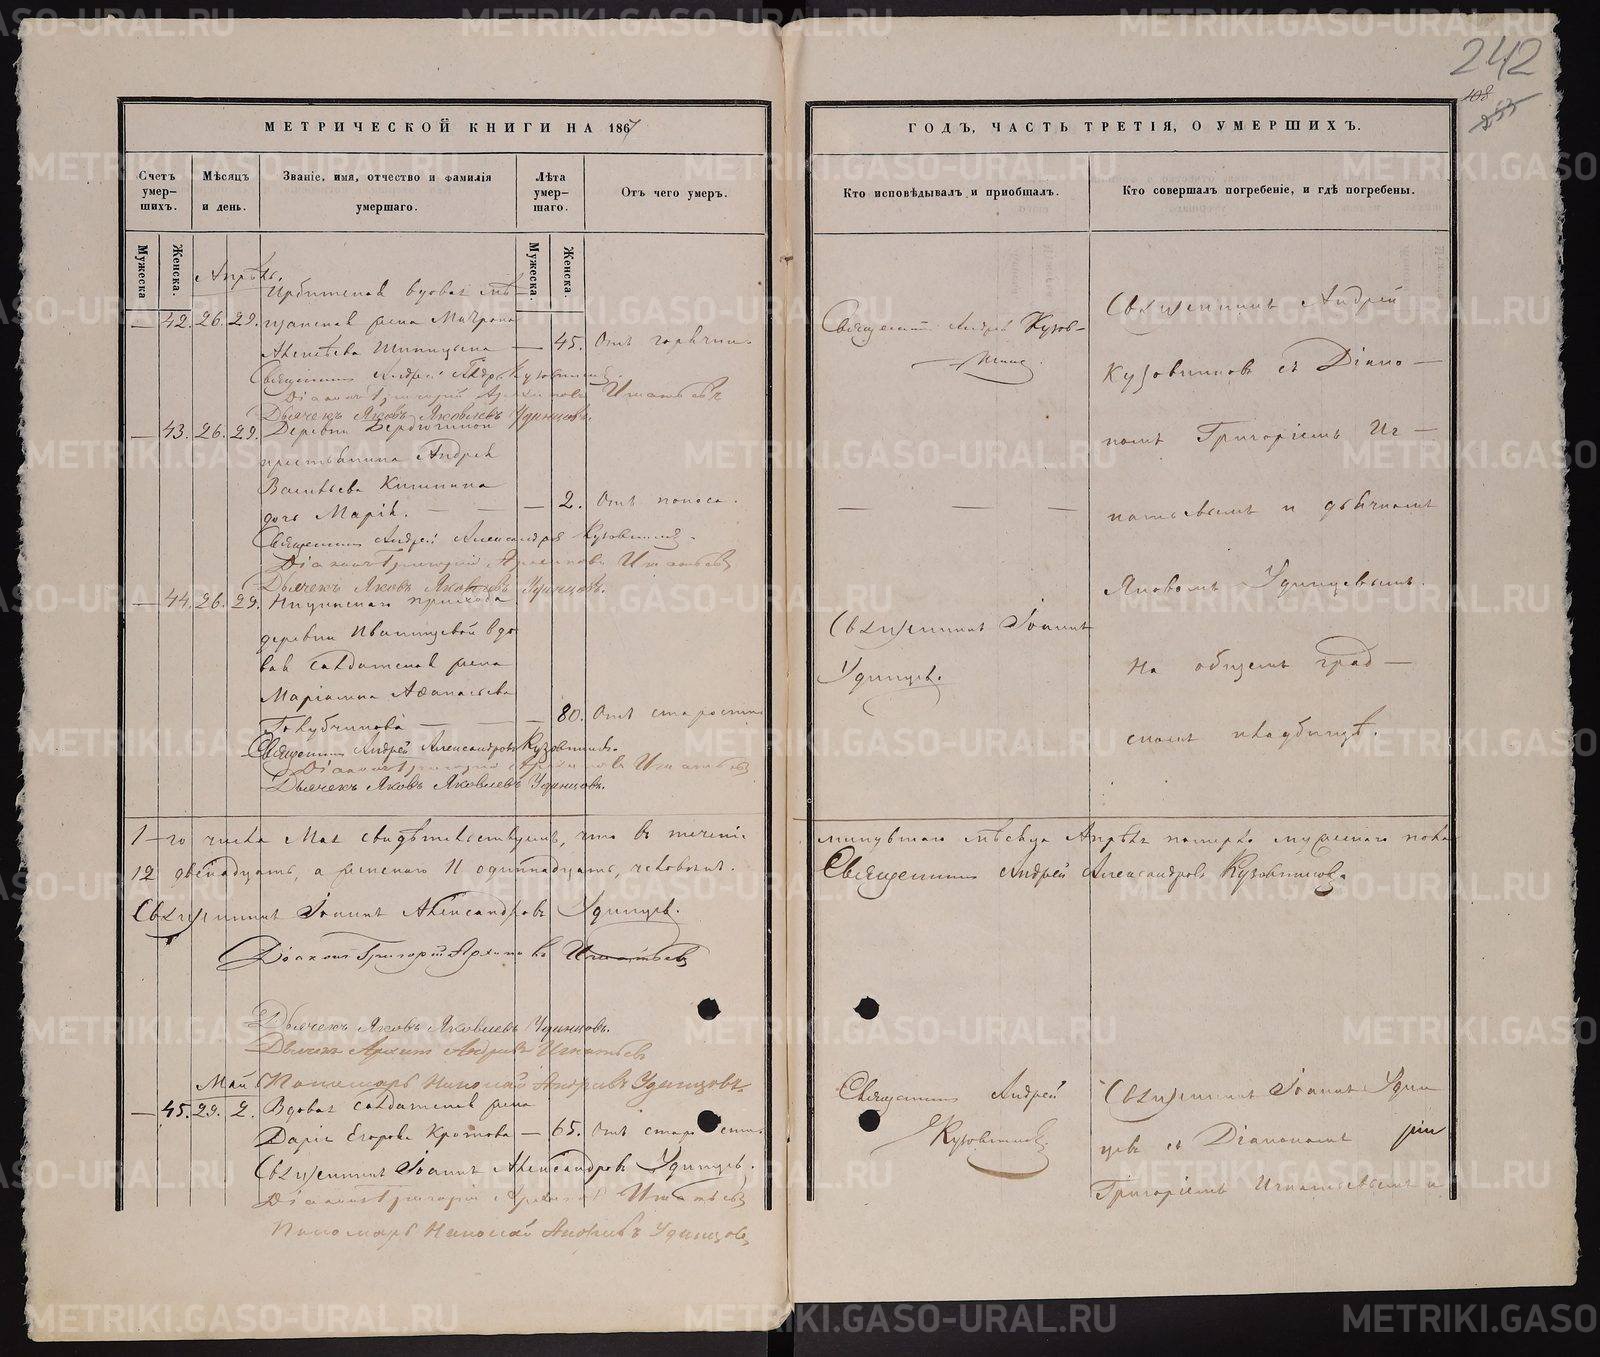 242
408
255
МЕТРИЧЕСКОЙ КНИГИ НА 1867
Счетъ умер-шихъ.
Мѣсяцъ и день.
Званіе, имя, отчество и фамилія умершаго.
Лѣта умер-шаго.
Отъ чего умеръ.
Мужеска
Женска.
Мужеска.
Женска.
Апрѣль.
Ирбитская вдовая мѣ-
— 42. 26. 29. щанская жена Матрона
Алексѣева Шипицына — 45. Отъ горячки.
Священникъ Андрей Александровъ Кузовниковъ.
Діаконъ Григорій Архиповъ Игнатьевъ
Дьячекъ Яковъ Яковлевъ Удинцовъ.
— 43. 26. 29. Деревни Бердюгиной
крестьянина Андрея
Васильева Кишкина
дочь Марія. — — — 2. Отъ поноса.
Священникъ Андрей Александровъ Кузовниковъ.
Діаконъ Григорій Архиповъ Игнатьевъ
Дьячекъ Яковъ Яковлевъ Удинцовъ.
— 44. 26. 29. прихода
деревни Иванищевой вдо
вая солдатская жена
Маріамна Аѳанасьева
Голубчикова — — — 80. Отъ старости
Священникъ Андрей Александровъ Кузовниковъ.
Діаконъ Григорій Архиповъ Игнатьевъ
Дьячекъ Яковъ Яковлевъ Удинцовъ.
1-го числа Мая свидѣтельствуемъ, что въ теченіе
12 двѣнадцать, а женскаго 11 одиннадцать, человѣкъ.
Священникъ Іоаннъ Александровъ Удинцевъ.
Діаконъ Григорій Архиповъ Игнатьевъ
Дьячекъ Яковъ Яковлевъ Удинцовъ.
Дьячекъ Архипъ Андреевъ Игнатьевъ
Май Пономарь Николай Андреевъ Удинцовъ.
— 45. 29. 2. Вдовая солдатская жена
Дарія Егорова Кротова — 65. Отъ старости
Священникъ Іоаннъ Александровъ Удинцевъ.
Діаконъ Григорій Архиповъ Игнатьевъ
Пономарь Николай Андреевъ Удинцовъ
ГОДЪ, ЧАСТЬ ТРЕТІЯ, О УМЕРШИХЪ.
Кто исповѣдывалъ и пріобщалъ.
Кто совершалъ погребеніе, и гдѣ погребены.
Священникъ Андрей Кузов-
никовъ.
— — —
Священникъ Іоаннъ
Удинцевъ.
Священникъ Андрей
Кузовниковъ съ Діако-
номъ Григоріемъ Иг-
натьевымъ и дьячкомъ
Яковомъ Удинцевымъ.
На общемъ град-
скомъ кладбищѣ.
минувшаго мѣсяца Апрѣля померло мужескаго пола
Священникъ Андрей Александровъ Кузовниковъ.
Священникъ Андрей
Кузовниковъ
Священникъ Іоаннъ Удин
цевъ съ Діакономъ
Григоріемъ Игнатьевымъ и
METRIKI.GASO-URAL.RU